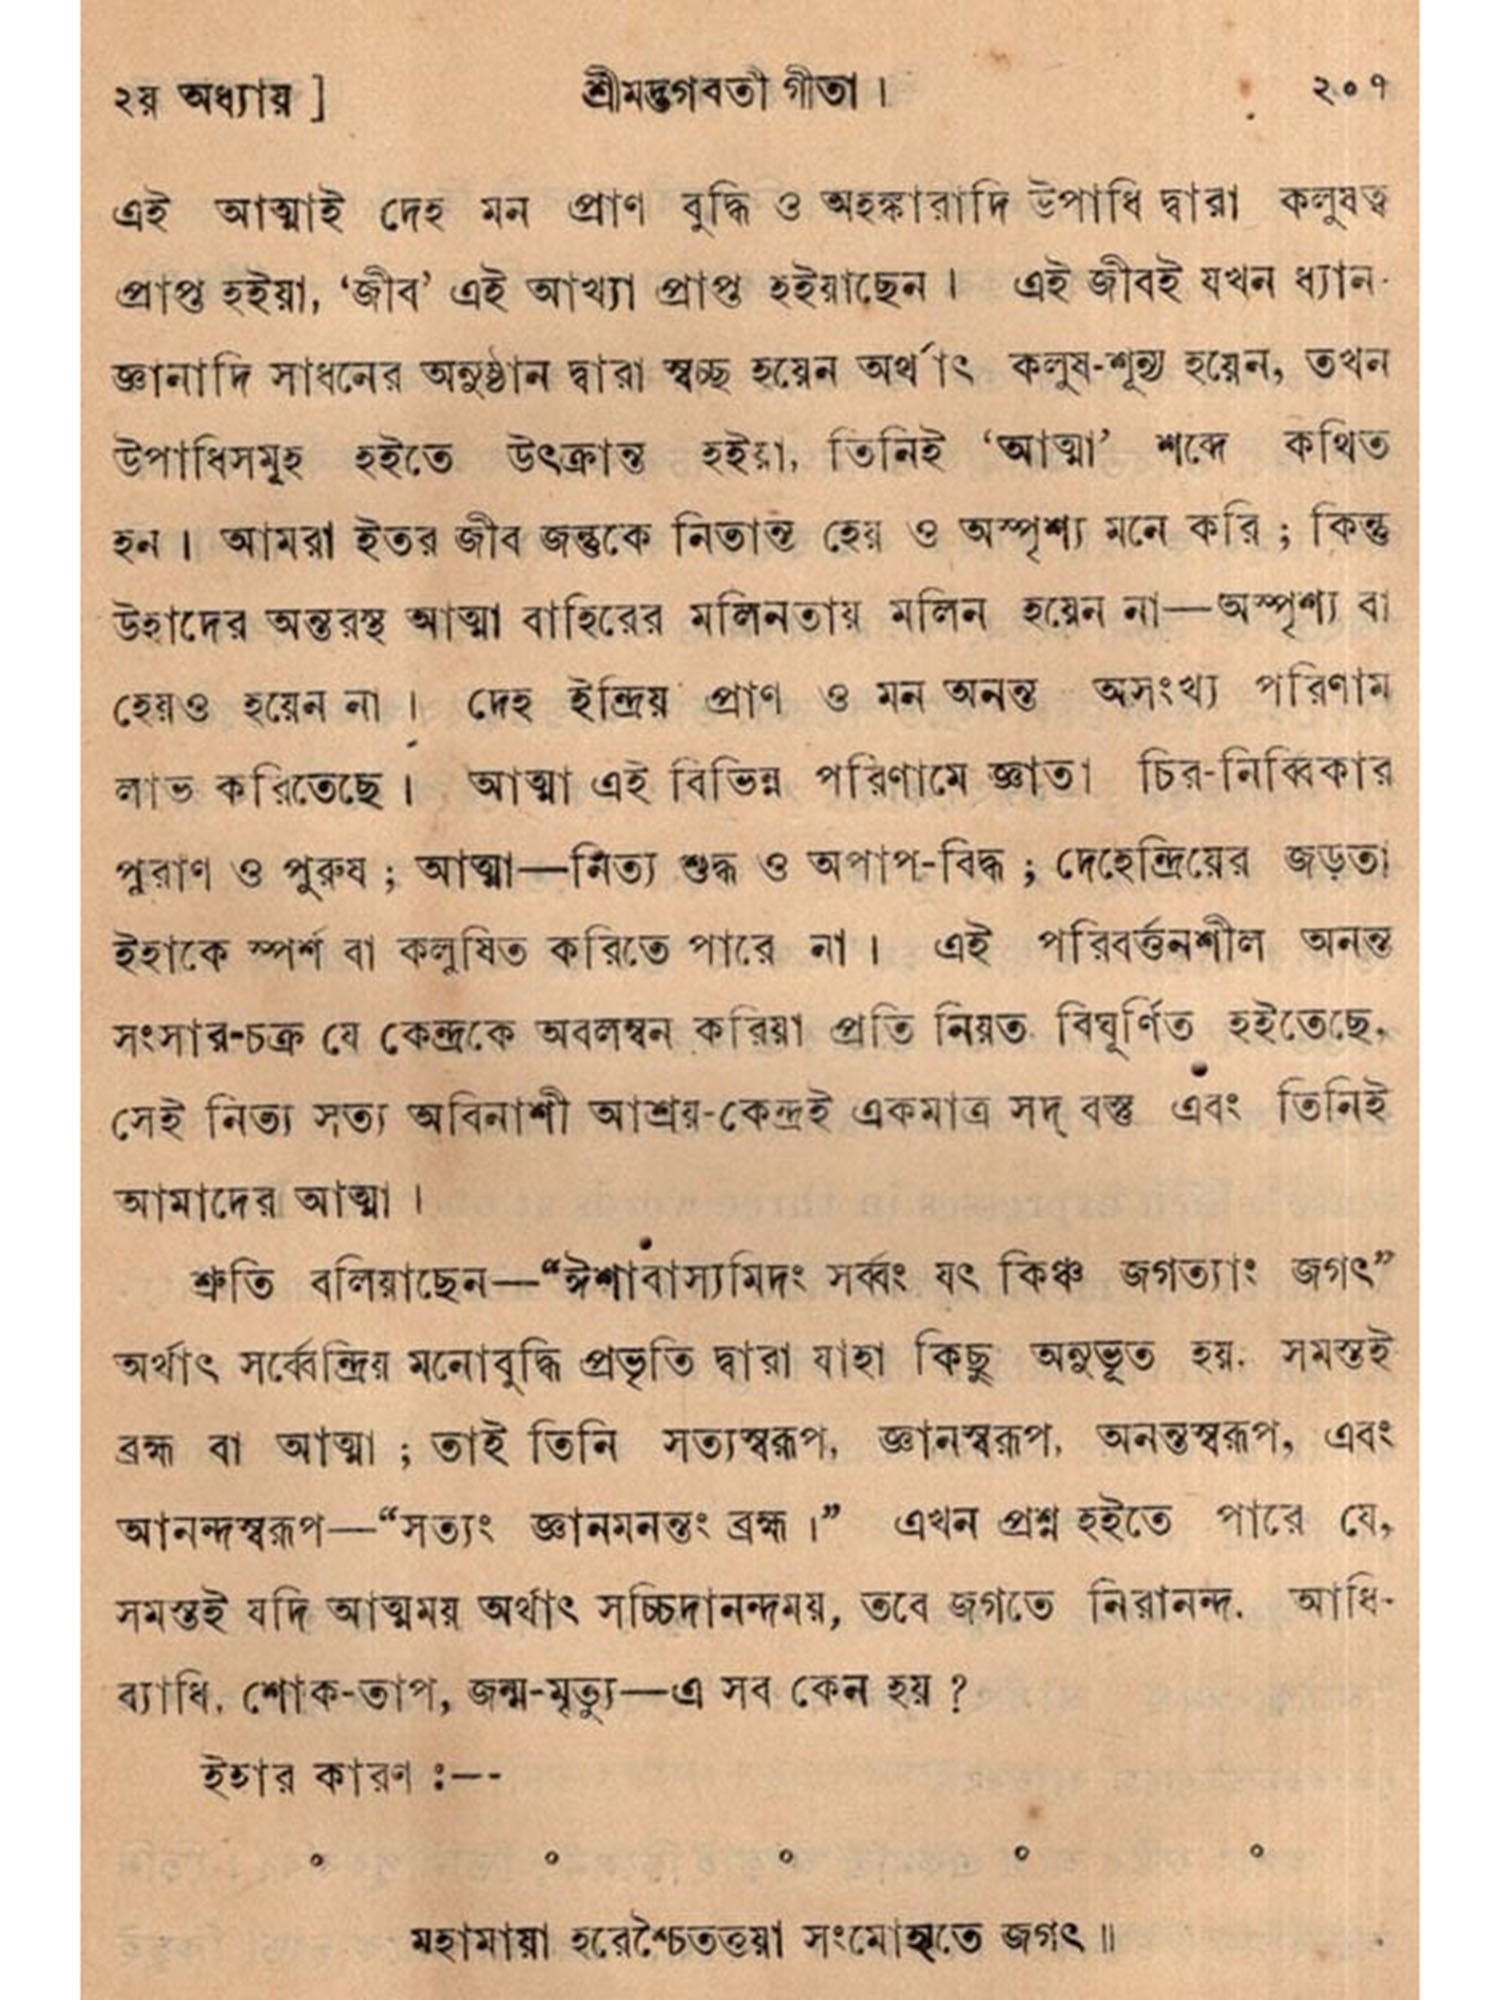 ২য় অধ্যায় ] শ্রীমদ্ভগবতী গীতা । ২০৭
এই আত্মাই দেহ মন প্রাণ বুদ্ধি ও অহঙ্কারাদি উপাধি দ্বারা কলুষত্ব
প্রাপ্ত হইয়া, ‘জীব’ এই আখ্যা প্রাপ্ত হইয়াছেন । এই জীবই যখন ধ্যান-
জ্ঞানাদি সাধনের অনুষ্ঠান দ্বারা স্বচ্ছ হয়েন অর্থাৎ কলুষ-শূন্য হয়েন, তখন
উপাধিসমূহ হইতে উৎক্রান্ত হইয়া, তিনিই ‘আত্মা’ শব্দে কথিত
হন । আমরা ইতর জীব জন্তুকে নিতান্ত হেয় ও অস্পৃশ্য মনে করি ; কিন্তু
উহাদের অন্তরস্থ আত্মা বাহিরের মলিনতায় মলিন হয়েন না—অস্পৃশ্য বা
হেয়ও হয়েন না । দেহ ইন্দ্রিয় প্রাণ ও মন অনন্ত অসংখ্য পরিণাম
লাভ করিতেছে । আত্মা এই বিভিন্ন পরিণামে জ্ঞাতা চির-নির্ব্বিকার
পুরাণ ও পুরুষ ; আত্মা—নিত্য শুদ্ধ ও অপাপ-বিদ্ধ ; দেহেন্দ্রিয়ের জড়তা
ইহাকে স্পর্শ বা কলুষিত করিতে পারে না । এই পরিবর্ত্তনশীল অনন্ত
সংসার-চক্র যে কেন্দ্রকে অবলম্বন করিয়া প্রতি নিয়ত বিঘূর্ণিত হইতেছে,
সেই নিত্য সত্য অবিনাশী আশ্রয়-কেন্দ্রই একমাত্র সদ্ বস্তু এবং তিনিই
আমাদের আত্মা ।
শ্রুতি বলিয়াছেন—“ঈশাবাস্যমিদং সর্ব্বং যৎ কিঞ্চ জগত্যাং জগৎ”
অর্থাৎ সর্ব্বেন্দ্রিয় মনোবুদ্ধি প্রভৃতি দ্বারা যাহা কিছু অনুভূত হয়, সমস্তই
ব্রহ্ম বা আত্মা ; তাই তিনি সত্যস্বরূপ, জ্ঞানস্বরূপ, অনন্তস্বরূপ, এবং
আনন্দস্বরূপ—“সত্যং জ্ঞানমনন্তং ব্রহ্ম ।” এখন প্রশ্ন হইতে পারে যে,
সমস্তই যদি আত্মময় অর্থাৎ সচ্চিদানন্দময়, তবে জগতে নিরানন্দ, আধি-
ব্যাধি, শোক-তাপ, জন্ম-মৃত্যু—এ সব কেন হয় ?
ইহার কারণ :—-
৹ ৹ ৹ ৹ ৹
মহামায়া হরেশ্চৈতত্তয়া সংমোহ্যতে জগৎ ॥